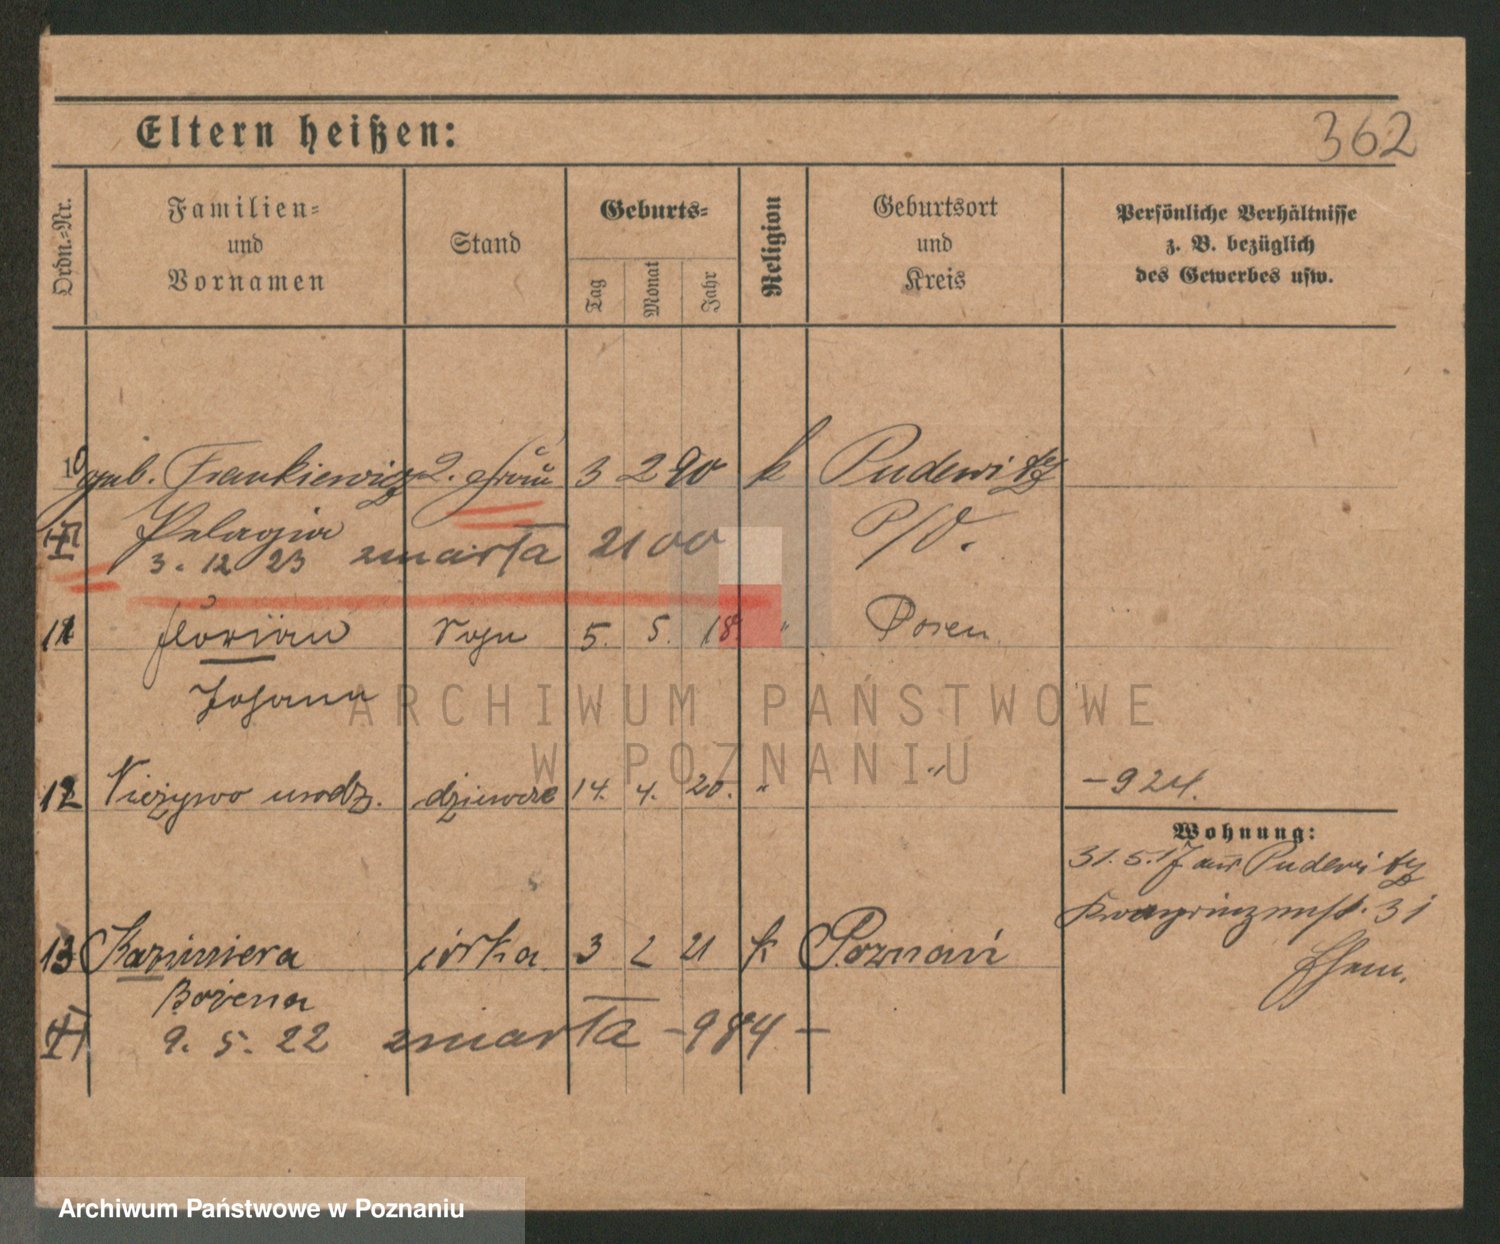 362
Eltern heißen:
Ordn.-Nr.
Familien-
und
Vornamen
Stand
Geburts-
Tag
Monat
Jahr
Religion
Geburtsort
und
Kreis
Persönliche Verhältnisse
z. B. bezüglich
des Gewerbes usw.
10 geb. Frankiewicz 2. Frau 3 2 90 k Pudewitz
Pelagia P/O.
3. 12 23 zmarta 2100
11 Florian Sohn 5. 5. 18. " Posen
Johann
12 Nieżywo urodz. dziewcze 14. 4. 20. " " - 924.
Wohnung:
31.5.17 aus Pudewitz
Kronprinzenst. 31
13 Kazimiera córka 3 2 21 k Poznań
Bożena
9. 5. 22 zmarta - 984 -
ARCHIWUM PAŃSTWOWE
W POZNANIU
Archiwum Państwowe w Poznaniu